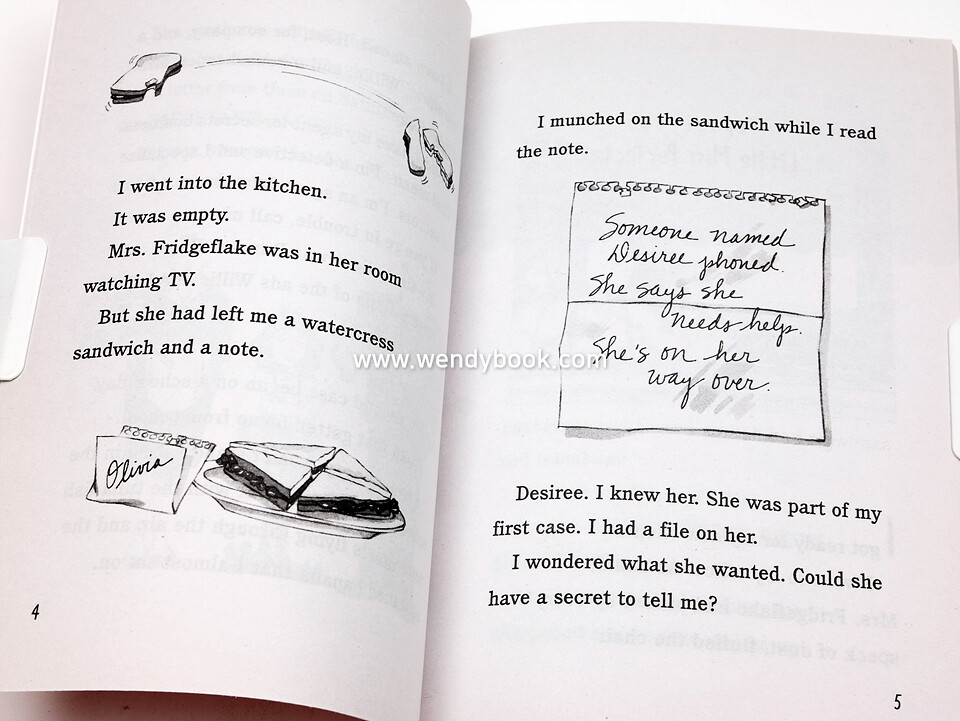 I went into the kitchen.
It was empty.
Mrs. Fridgeflake was in her room
watching TV.
But she had left me a watercress
sandwich and a note.
Olivia
4
I munched on the sandwich while I read
the note.
Someone named
Desiree phoned.
She says she
needs help.
She's on her
way over.
Desiree. I knew her. She was part of my
first case. I had a file on her.
I wondered what she wanted. Could she
have a secret to tell me?
5
www.wendybook.com